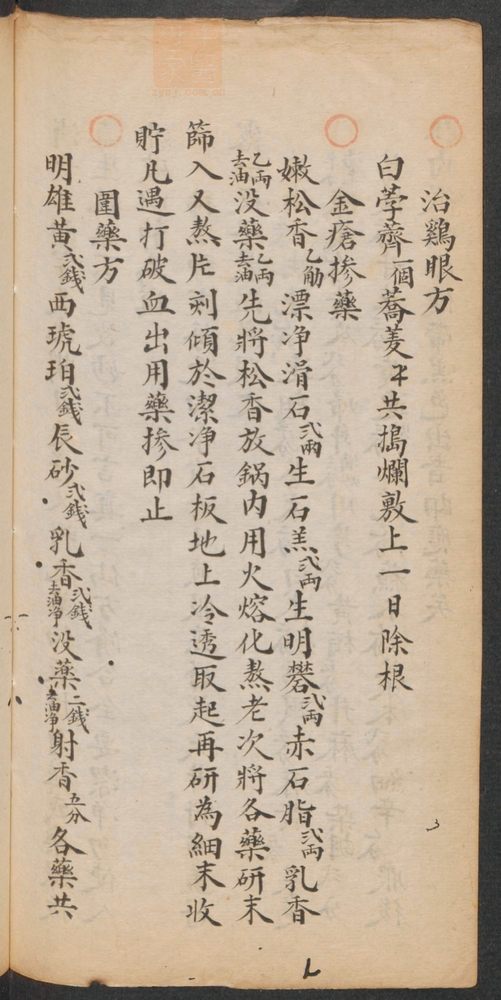 治鷄眼方
白荸薺一個蕎麦𠦑共搗爛敷上一日除根
金瘡摻藥
嫩松香乙觔漂净滑石弍兩生石羔弍兩生明礬弍兩赤石脂弍兩乳香
乙兩去油没藥乙兩去油先將松香放鍋内用火熔化熬老次將各藥研末
篩入又熬片刻傾於潔净石板地上冷透取起再研為細末收
貯凡遇打破血出用藥摻即止
圍藥方
明雄黃弍錢西琥珀弍錢辰砂弍錢乳香弍錢去油净没藥二錢去油净射香五分各藥共